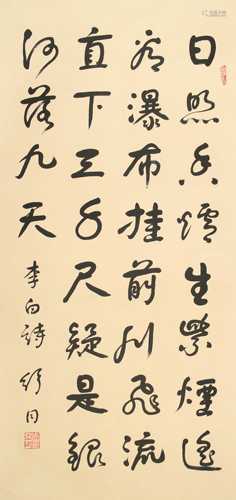 日照香爐生紫煙遙
看瀑布挂前川飛流
直下三千尺疑是銀
河落九天
李白詩 舒同